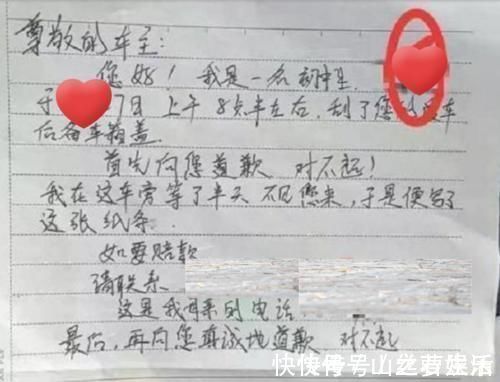 尊敬的车主：
您好！我是一名初中生
于 7日上午8点半左右，刮了您 车
后备车箱盖
首先向您道歉 对不起！
我在这车旁等了半天 不见您来，于是便写了
这张纸条.
如要赔款
请联系
这是我母亲的电话
最后，再向您真诚地道歉，对不起